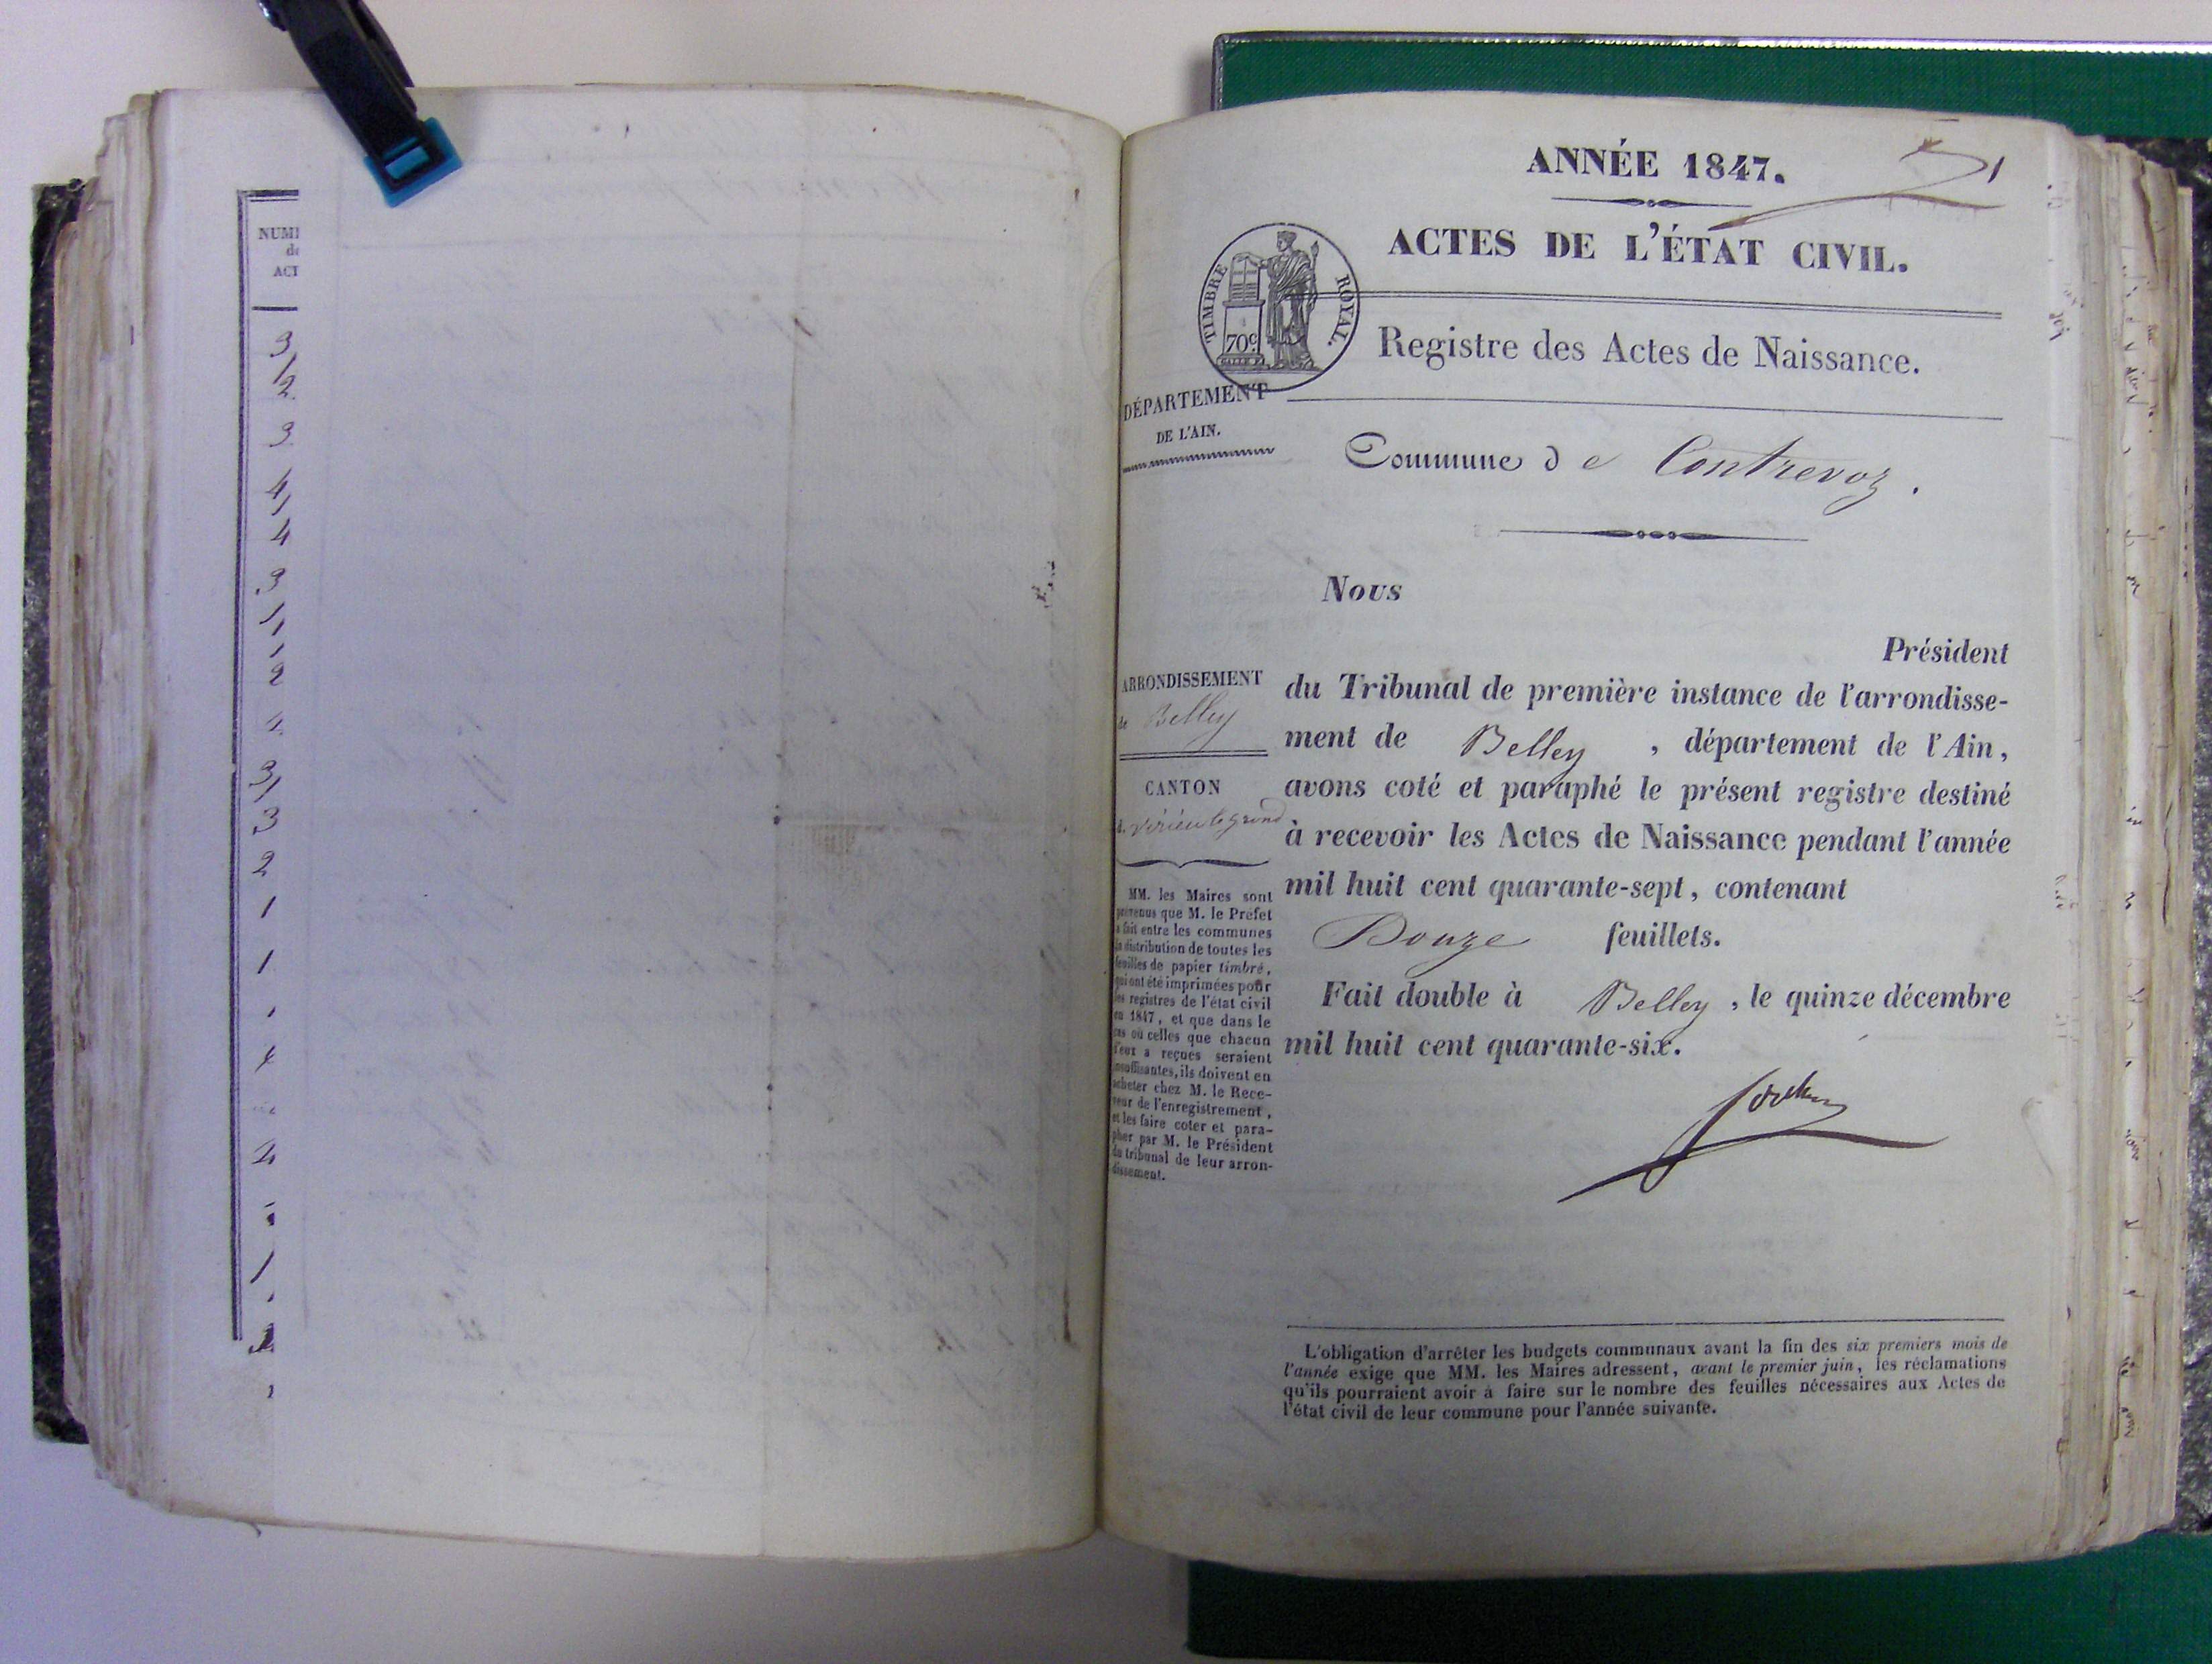 NUM
de
ACT
3
2
3
4
4
3
1
1
2
4
3
3
2
1
1
4
1
ANNÉE 1847.
1
ACTES DE L'ÉTAT CIVIL.
TIMBRE ROYAL.
70c
Registre des Actes de Naissance.
DÉPARTEMENT
DE L'AIN.
Commune de Contrevoz.
Nous
Président
du Tribunal de première instance de l'arrondisse-
ment de Belley, département de l'Ain,
avons coté et paraphé le présent registre destiné
à recevoir les Actes de Naissance pendant l'année
mil huit cent quarante-sept, contenant
Douze feuillets.
Fait double à Belley, le quinze décembre
mil huit cent quarante-six.
ARRONDISSEMENT
de Belley
CANTON
d. virieu le grand
MM. les Maires sont
prévenus que M. le Préfet
a fait entre les communes
la distribution de toutes les
feuilles de papier timbré,
qui ont été imprimées pour
les registres de l'état civil
en 1847, et que dans le
cas où celles que chacun
d'eux a reçues seraient
insuffisantes, ils doivent en
acheter chez M. le Rece-
veur de l'enregistrement,
et les faire coter et para-
pher par M. le Président
du tribunal de leur arron-
dissement.
L'obligation d'arrêter les budgets communaux avant la fin des six premiers mois de
l'année exige que MM. les Maires adressent, avant le premier juin, les réclamations
qu'ils pourraient avoir à faire sur le nombre des feuilles nécessaires aux Actes de
l'état civil de leur commune pour l'année suivante.